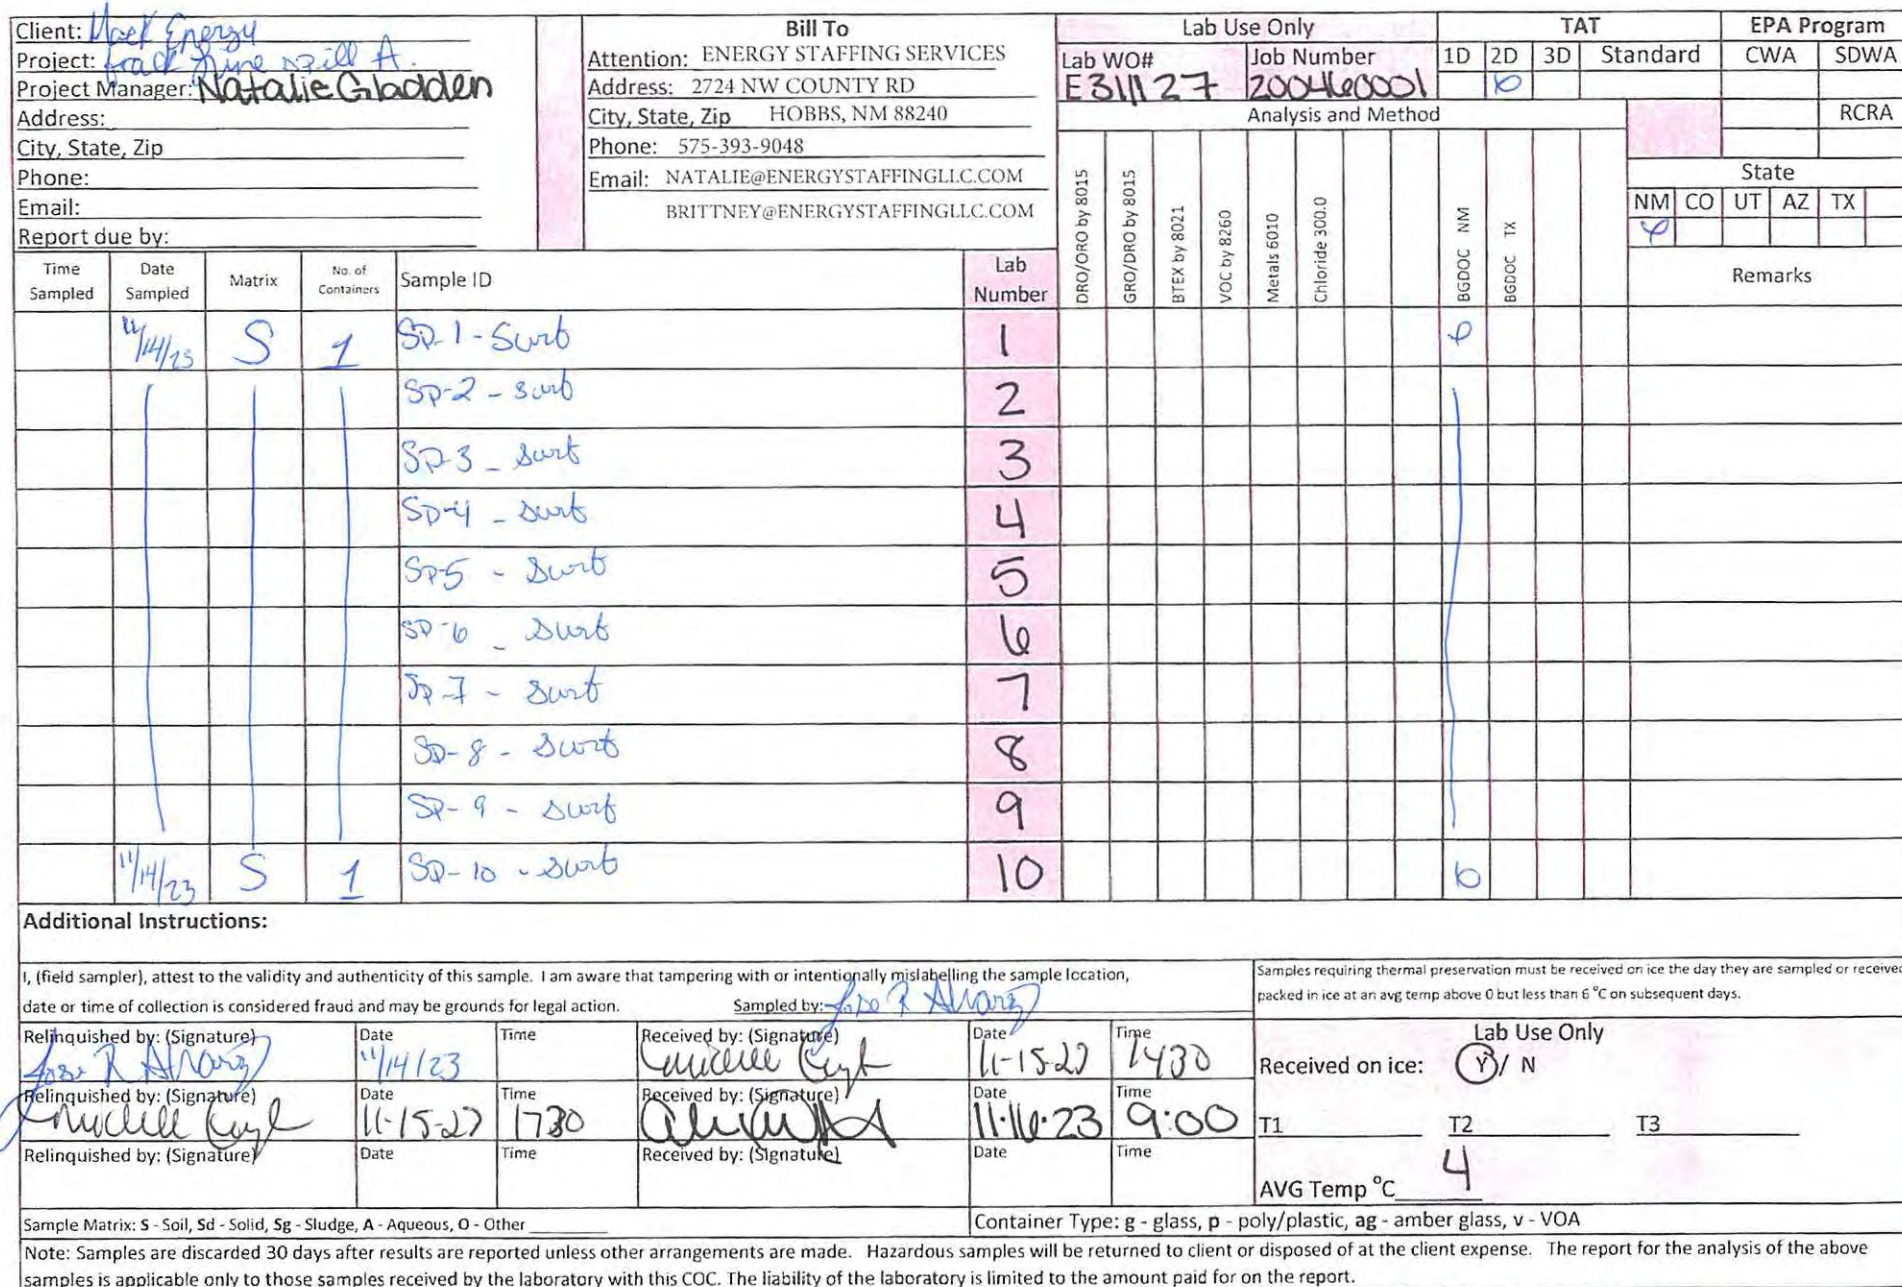 Client: Mack Energy
Project: Road Line Spill A.
Project Manager: Natalie Gladden
Address:
City, State, Zip
Phone:
Email:
Report due by:
Bill To
Attention: ENERGY STAFFING SERVICES
Address: 2724 NW COUNTY RD
City, State, Zip HOBBS, NM 88240
Phone: 575-393-9048
Email: NATALIE@ENERGYSTAFFINGLLC.COM
BRITTNEY@ENERGYSTAFFINGLLC.COM
Lab Use Only
Lab WO# Job Number
E311127 200460001
TAT
1D 2D 3D Standard
EPA Program
CWA SDWA
RCRA
Analysis and Method
State
NM CO UT AZ TX
Time Sampled Date Sampled Matrix No. of Containers Sample ID Lab Number DRO/ORO by 8015 GRO/DRO by 8015 BTEX by 8021 VOC by 8260 Metals 6010 Chloride 300.0 BGDOC NM BGDOC TX Remarks
11/14/23 S 1 SP-1-Surf 1
SP-2 - surf 2
SP-3 - surf 3
SP-4 - surf 4
SP-5 - surf 5
SP-6 - surf 6
SP-7 - surf 7
SP-8 - surf 8
SP-9 - surf 9
11/14/23 S 1 SP-10 - surf 10
Additional Instructions:
I, (field sampler), attest to the validity and authenticity of this sample. I am aware that tampering with or intentionally mislabelling the sample location,
date or time of collection is considered fraud and may be grounds for legal action. Sampled by: Jose R Alvarez
Samples requiring thermal preservation must be received on ice the day they are sampled or received
packed in ice at an avg temp above 0 but less than 6 °C on subsequent days.
Relinquished by: (Signature) Jose R Alvarez Date 11/14/23 Time Received by: (Signature) Date 11-15-23 Time 1430
Relinquished by: (Signature) Date 11-15-23 Time 1730 Received by: (Signature) Date 11-16-23 Time 9:00
Relinquished by: (Signature) Date Time Received by: (Signature) Date Time
Lab Use Only
Received on ice: Y / N
T1 T2 T3
AVG Temp °C 4
Sample Matrix: S - Soil, Sd - Solid, Sg - Sludge, A - Aqueous, O - Other
Container Type: g - glass, p - poly/plastic, ag - amber glass, v - VOA
Note: Samples are discarded 30 days after results are reported unless other arrangements are made. Hazardous samples will be returned to client or disposed of at the client expense. The report for the analysis of the above
samples is applicable only to those samples received by the laboratory with this COC. The liability of the laboratory is limited to the amount paid for on the report.